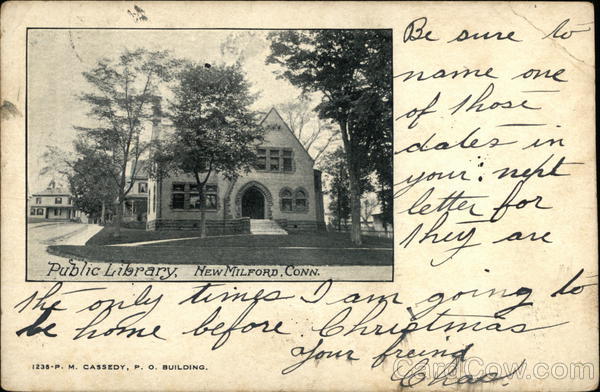 Be sure to
name one
of those
dates in
your next
letter for
They are
Public Library, New Milford, Conn.
the only times I am going to
be home before Christmas
Your freind
Chas
1238-P. M. CASSEDY, P. O. BUILDING.
CardCow.com